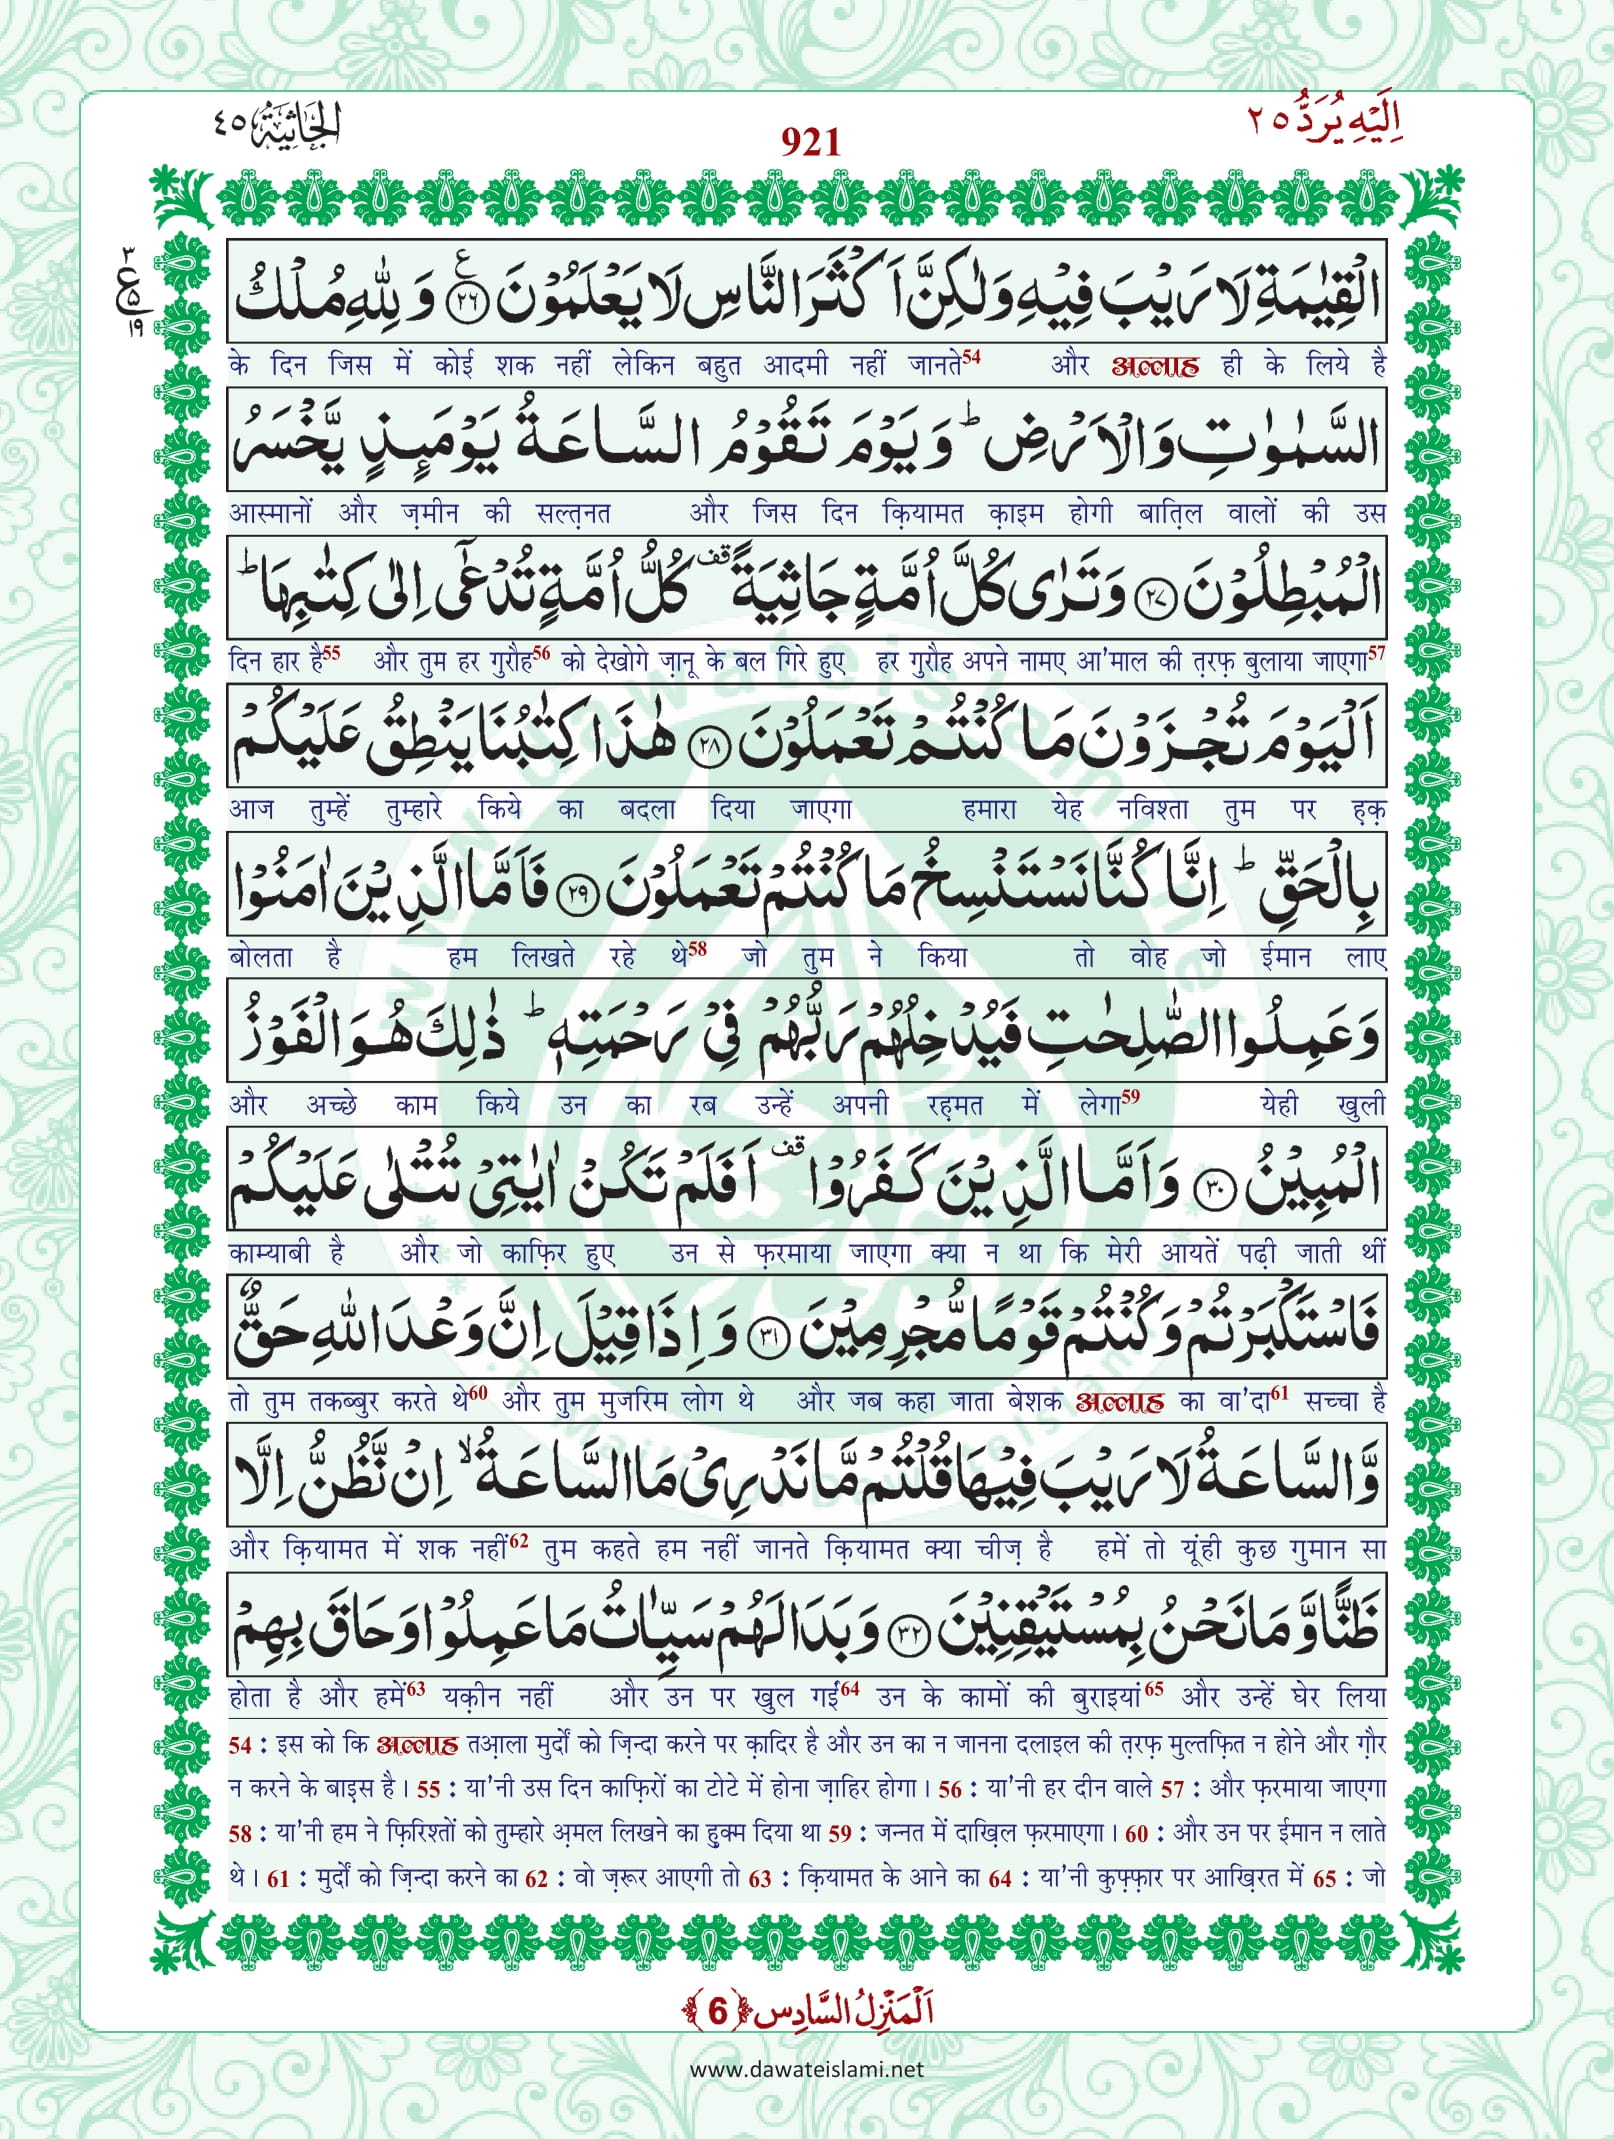 الجاثية ٤٥
921
اِلَیْهِ یُرَدُّ ٢٥
٣ ع ٥ ١٩
الْقِیٰمَةِ لَا رَیْبَ فِیْهِ وَلٰكِنَّ اَكْثَرَ النَّاسِ لَا یَعْلَمُوْنَ ﴿٢٦﴾ ع وَ لِلّٰهِ مُلْكُ
के दिन जिस में कोई शक नहीं लेकिन बहुत आदमी नहीं जानते54 और अल्लाह ही के लिये है
السَّمٰوٰتِ وَ الْاَرْضِ ؕ وَ یَوْمَ تَقُوْمُ السَّاعَةُ یَوْمَىٕذٍ یَّخْسَرُ
आस्मानों और ज़मीन की सल्त़नत और जिस दिन क़ियामत क़ाइम होगी बात़िल वालों की उस
الْمُبْطِلُوْنَ ﴿٢٧﴾ وَ تَرٰى كُلَّ اُمَّةٍ جَاثِیَةً قف كُلُّ اُمَّةٍ تُدْعٰۤى اِلٰى كِتٰبِهَا ؕ
दिन हार है55 और तुम हर गुरौह56 को देखोगे ज़ानू के बल गिरे हुए हर गुरौह अपने नामए आ’माल की त़रफ़ बुलाया जाएगा57
اَلْیَوْمَ تُجْزَوْنَ مَا كُنْتُمْ تَعْمَلُوْنَ ﴿٢٨﴾ هٰذَا كِتٰبُنَا یَنْطِقُ عَلَیْكُمْ
आज तुम्हें तुम्हारे किये का बदला दिया जाएगा हमारा येह नविश्ता तुम पर ह़क़
بِالْحَقِّ ؕ اِنَّا كُنَّا نَسْتَنْسِخُ مَا كُنْتُمْ تَعْمَلُوْنَ ﴿٢٩﴾ فَاَمَّا الَّذِیْنَ اٰمَنُوْا
बोलता है हम लिखते रहे थे58 जो तुम ने किया तो वोह जो ईमान लाए
وَ عَمِلُوا الصّٰلِحٰتِ فَیُدْخِلُهُمْ رَبُّهُمْ فِیْ رَحْمَتِهٖ ؕ ذٰلِكَ هُوَ الْفَوْزُ
और अच्छे काम किये उन का रब उन्हें अपनी रह़मत में लेगा59 येही खुली
الْمُبِیْنُ ﴿٣٠﴾ وَ اَمَّا الَّذِیْنَ كَفَرُوْا قف اَفَلَمْ تَكُنْ اٰیٰتِیْ تُتْلٰى عَلَیْكُمْ
काम्याबी है और जो काफ़िर हुए उन से फ़रमाया जाएगा क्या न था कि मेरी आयतें पढ़ी जाती थीं
فَاسْتَكْبَرْتُمْ وَ كُنْتُمْ قَوْمًا مُّجْرِمِیْنَ ﴿٣١﴾ وَ اِذَا قِیْلَ اِنَّ وَعْدَ اللّٰهِ حَقٌّ
तो तुम तकब्बुर करते थे60 और तुम मुजरिम लोग थे और जब कहा जाता बेशक अल्लाह का वा’दा61 सच्चा है
وَّ السَّاعَةُ لَا رَیْبَ فِیْهَا قُلْتُمْ مَّا نَدْرِیْ مَا السَّاعَةُ ۙ اِنْ نَّظُنُّ اِلَّا
और क़ियामत में शक नहीं62 तुम कहते हम नहीं जानते क़ियामत क्या चीज़ है हमें तो यूंही कुछ गुमान सा
ظَنًّا وَّ مَا نَحْنُ بِمُسْتَیْقِنِیْنَ ﴿٣٢﴾ وَ بَدَا لَهُمْ سَیِّاٰتُ مَا عَمِلُوْا وَ حَاقَ بِهِمْ
होता है और हमें63 यक़ीन नहीं और उन पर खुल गई64 उन के कामों की बुराइयां65 और उन्हें घेर लिया
54 : इस को कि अल्लाह तआ़ला मुर्दों को ज़िन्दा करने पर क़ादिर है और उन का न जानना दलाइल की त़रफ़ मुल्तफ़ित न होने और ग़ौर
न करने के बाइस है। 55 : या’नी उस दिन काफ़िरों का टोटे में होना ज़ाहिर होगा। 56 : या’नी हर दीन वाले 57 : और फ़रमाया जाएगा
58 : या’नी हम ने फ़िरिश्तों को तुम्हारे अ़मल लिखने का हुक्म दिया था 59 : जन्नत में दाख़िल फ़रमाएगा। 60 : और उन पर ईमान न लाते
थे। 61 : मुर्दों को ज़िन्दा करने का 62 : वो ज़रूर आएगी तो 63 : क़ियामत के आने का 64 : या’नी कुफ़्फ़ार पर आख़िरत में 65 : जो
اَلْمَنْزِلُ السَّادِس ﴿6﴾
www.dawateislami.net